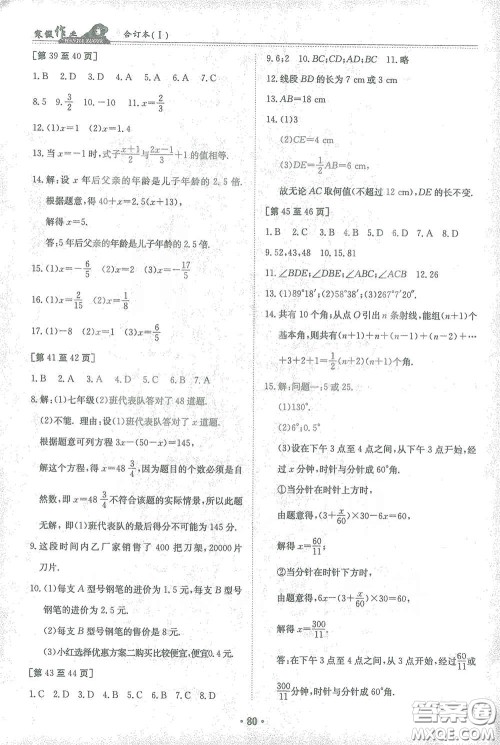 寒假作业 合订本(Ⅰ)
[第 39 至 40 页]
1. B 2. A 3. B 4. C 5. D 6. D 7. B
8. 5 9. $\frac{3}{2}$ 10. −11 11. $\frac{2}{3}$
12. (1)x=1 (2)x=1.4
13. 当 x=−1 时, 式子$\frac{x+1}{2}$与$\frac{2x-1}{3}$+1 的值相等.
14. 解: 设 x 年后父亲的年龄是儿子年龄的 2.5 倍.
根据题意, 得 40+x=2.5(x+13).
解得 x=5.
答: 5 年后父亲的年龄是儿子年龄的 2.5 倍.
15. (1)x=−$\frac{6}{5}$ (2)x=−$\frac{6}{5}$ (3)x=−$\frac{17}{5}$
16. (1)x=0 (2)x=$\frac{1}{3}$
17. (1)x=−9 (2)x=1
[第 41 至 42 页]
1. B 2. C 3. D 4. A 5. B 6. B 7. A
8. 解: (1)七年级(1)班代表队答对了 48 道题.
(2)不能. 理由: 设(2)班代表队答对了 x 道题,
根据题意可列方程 3x−(50−x)=145,
解这个方程, 得 x=48$\frac{3}{4}$. 因为题目的个数必须是自
然数, 即 x=48$\frac{3}{4}$不符合该题的实际情景, 所以此题
无解, 即(1)班代表队的最后得分不可能为 145 分.
9. 这段时间内乙厂家销售了 400 把刀架, 20000 片
刀片.
10. (1)每支 A 型号钢笔的进价为 2.5 元.
(2)每支 A 型号钢笔的售价是 8 元.
(3)小红选择优惠方案二购买比较便宜, 便宜 0.4 元.
[第 43 至 44 页]
1. C 2. D 3. C 4. C 5. A 6. C 7. D 8. D
9. 6; 2 10. BC; CD; BD; CD 11. 略
12. 线段 BD 的长为 7 cm 或 1 cm.
13. AB=18 cm
14. (1)3
(2)CE=4 cm
(3)DE=$\frac{1}{2}$AB=6 cm.
故无论 AC 取何值(不超过 12 cm), DE 的长不变.
[第 45 至 46 页]
1. B 2. D 3. C 4. B 5. D 6. A 7. D 8. C
9. 52, 43, 48 10. 15, 81
11. ∠BDE; ∠DBE; ∠ABC; ∠ACB 12. 26
13. (1)89°18′; (2)58°15′; (3)264°20′.
14. 图中有 10 个角, 从点 O 引出 n 条射线, 能组(n+1)个
基本角, 则共有(n+1)+n+(n−1)+(n−2)+…
+3+2+1=$\frac{1}{2}$(n+2)(n+1)个角.
15. 解: 问题一: 5 或 25.
(1)130°.
(2)6°; 0.5°.
(3)设在下午 3 点至 4 点之间, 从下午 3 点开始,
经过 x 分钟, 时针与分针成 60°角.
①当分针在时针上方时,
由题意得, (3+$\frac{x}{60}$)×30−6x=60,
解得 x=$\frac{60}{11}$;
②当分针在时针下方时,
由题意得, 6x−(3+$\frac{x}{60}$)×30=60.
解得 x=$\frac{300}{11}$.
答: 在下午 3 点至 4 点之间, 从下午 3 点开始, 经过$\frac{60}{11}$或
$\frac{300}{11}$分钟, 时针与分针成 60°角.
· 80 ·
答案圈
MXQE.COM